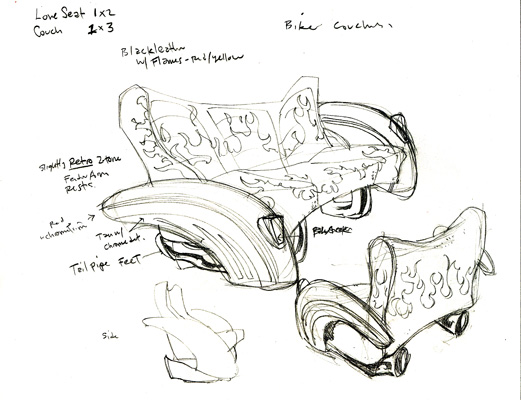 Love Seat 1x2
Couch 2x3
Biker Couches.
Blackleather
w/ Flames - Red/yellow
slightly Retro 2 tone
Fender Arm
Rests.
Red
w/chrome trim
Tan w/
chrome det.
Tail pipe Feet
Side